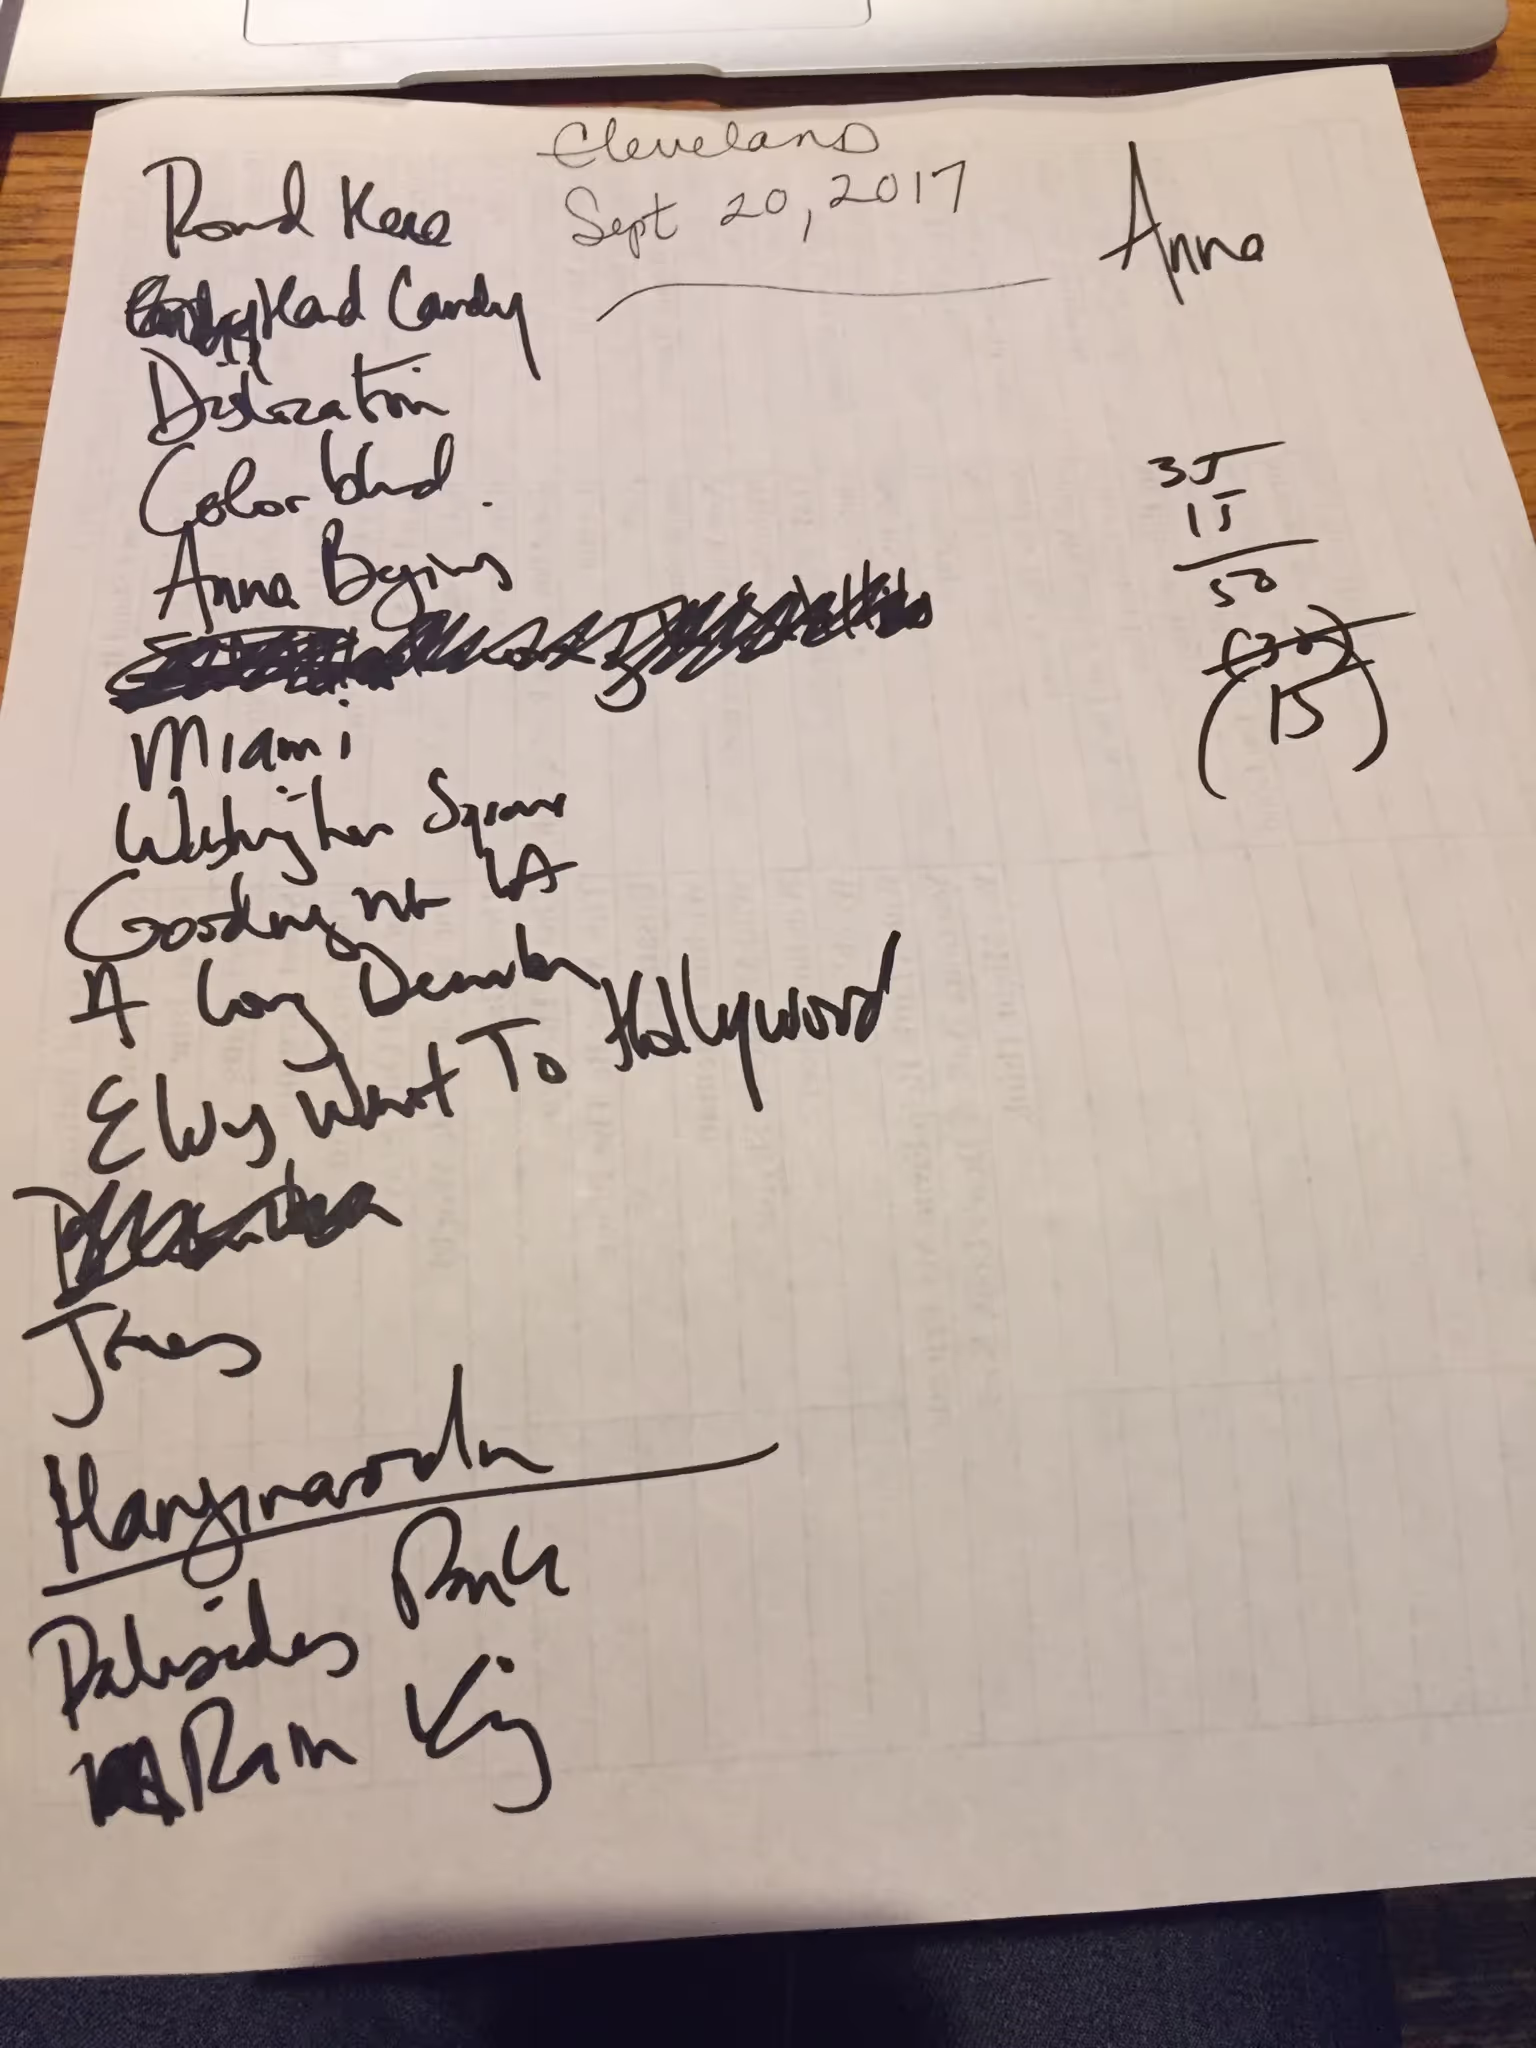 Cleveland
Sept 20, 2017
Round Here
Hard Candy
Dislocation
Colorblind
Anna Begins
Miami
Washington Square
Goodnight LA
A Long December
Elvys Want To Hollywood
Jones
Hanginaround
Palisades Park
Rain King
Anna
35
15
50
(15)